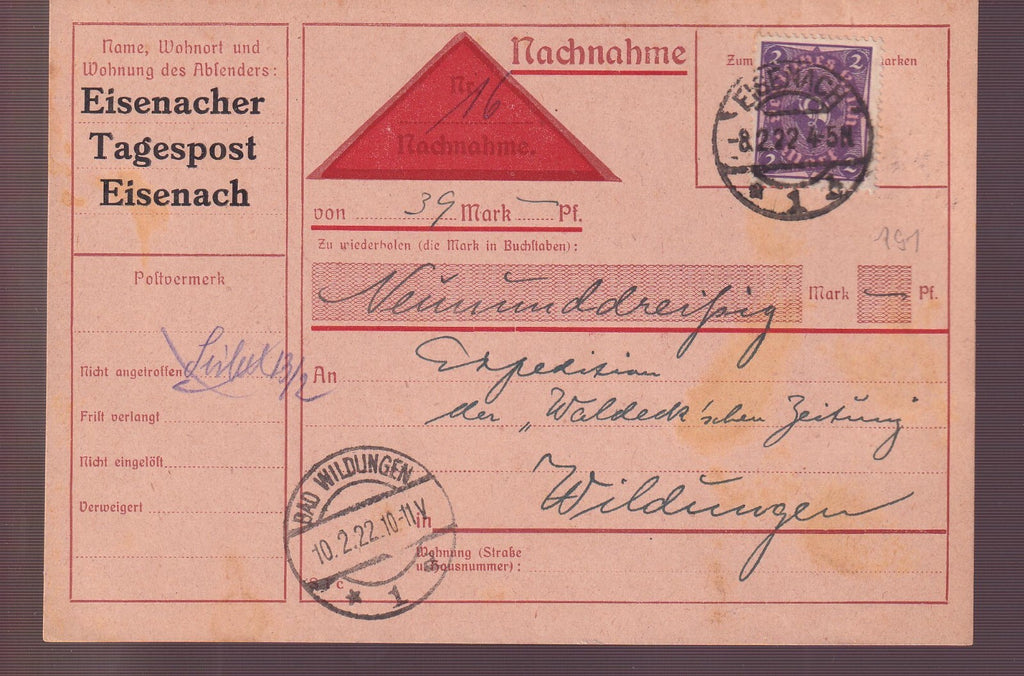 Name, Wohnort und
Wohnung des Absenders:
Eisenacher
Tagespost
Eisenach
Postvermerk
Nicht angetroffen
13/2
Frist verlangt
Nicht eingelöst
Verweigert
Nachnahme
Nr.
16
Nachnahme.
Zum
marken
2 2
2
EISENACH
-8.2.22 4-5N
* 1 b
von 39 Mark — Pf.
191
Zu wiederholen (die Mark in Buchstaben):
Neununddreißig Mark — Pf.
An Expedition
der „Waldeck'schen Zeitung"
Wildungen
in
BAD WILDUNGEN
10.2.22.10-11.V
* 1
Wohnung (Straße
u. Hausnummer):